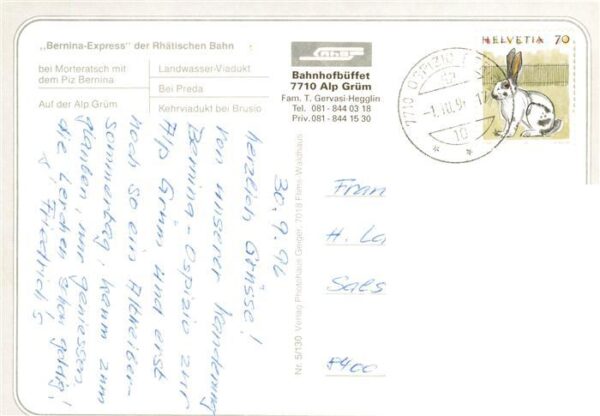 „Bernina-Express“ der Rhätischen Bahn
bei Morteratsch mit
dem Piz Bernina
Auf der Alp Grüm
Landwasser-Viadukt
Bei Preda
Kehrviadukt bei Brusio
Bahnhofbüffet
7710 Alp Grüm
Fam. T. Gervasi-Hegglin
Tel. 081 - 844 03 18
Priv. 081 - 844 15 30
HELVETIA 70
7710 OSPIZIO
-1.10.96-17
Nr. 5/130 Verlag Photohaus Geiger, 7018 Flims-Waldhaus
30.9.96
Herzlich Grüsse!
von unserer Wanderung
Bernina-Ospizio zur
Alp Grüm und erst
noch so ein Altweiber-
sommertag; kaum zum
glauben, nur geniessen,
die Lerchen schon goldig!
Friedrich's
Fran
H. La
Saes
8400